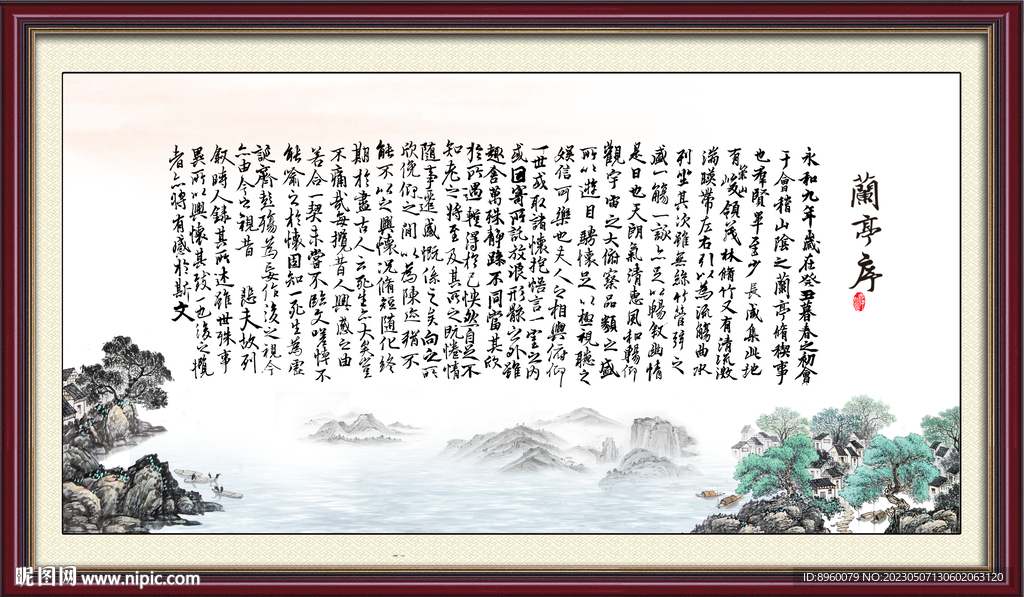 蘭亭序
永和九年歲在癸丑暮春之初會
于會稽山陰之蘭亭脩稧事
也群賢畢至少長咸集此地
有崇山峻領茂林脩竹又有清流激
湍暎帶左右引以為流觴曲水
列坐其次雖無絲竹管弦之
盛一觴一詠亦足以暢敘幽情
是日也天朗氣清惠風和暢仰
觀宇宙之大俯察品類之盛
所以遊目騁懷足以極視聽之
娛信可樂也夫人之相與俯仰
一世或取諸懷抱悟言一室之內
或因寄所託放浪形骸之外雖
趣舍萬殊靜躁不同當其欣
於所遇暫得於己怏然自足不
知老之將至及其所之既惓情
隨事遷感慨係之矣向之所
欣俛仰之間以為陳迹猶不
能不以之興懷況脩短隨化終
期於盡古人云死生亦大矣豈
不痛哉每攬昔人興感之由
若合一契未嘗不臨文嗟悼不
能喻之於懷固知一死生為虛
誕齊彭殤為妄作後之視今
亦由今之視昔 悲夫故列
敘時人錄其所述雖世殊事
異所以興懷其致一也後之攬
者亦將有感於斯文
昵图网 www.nipic.com
ID:8960079 NO:20230507130602063120